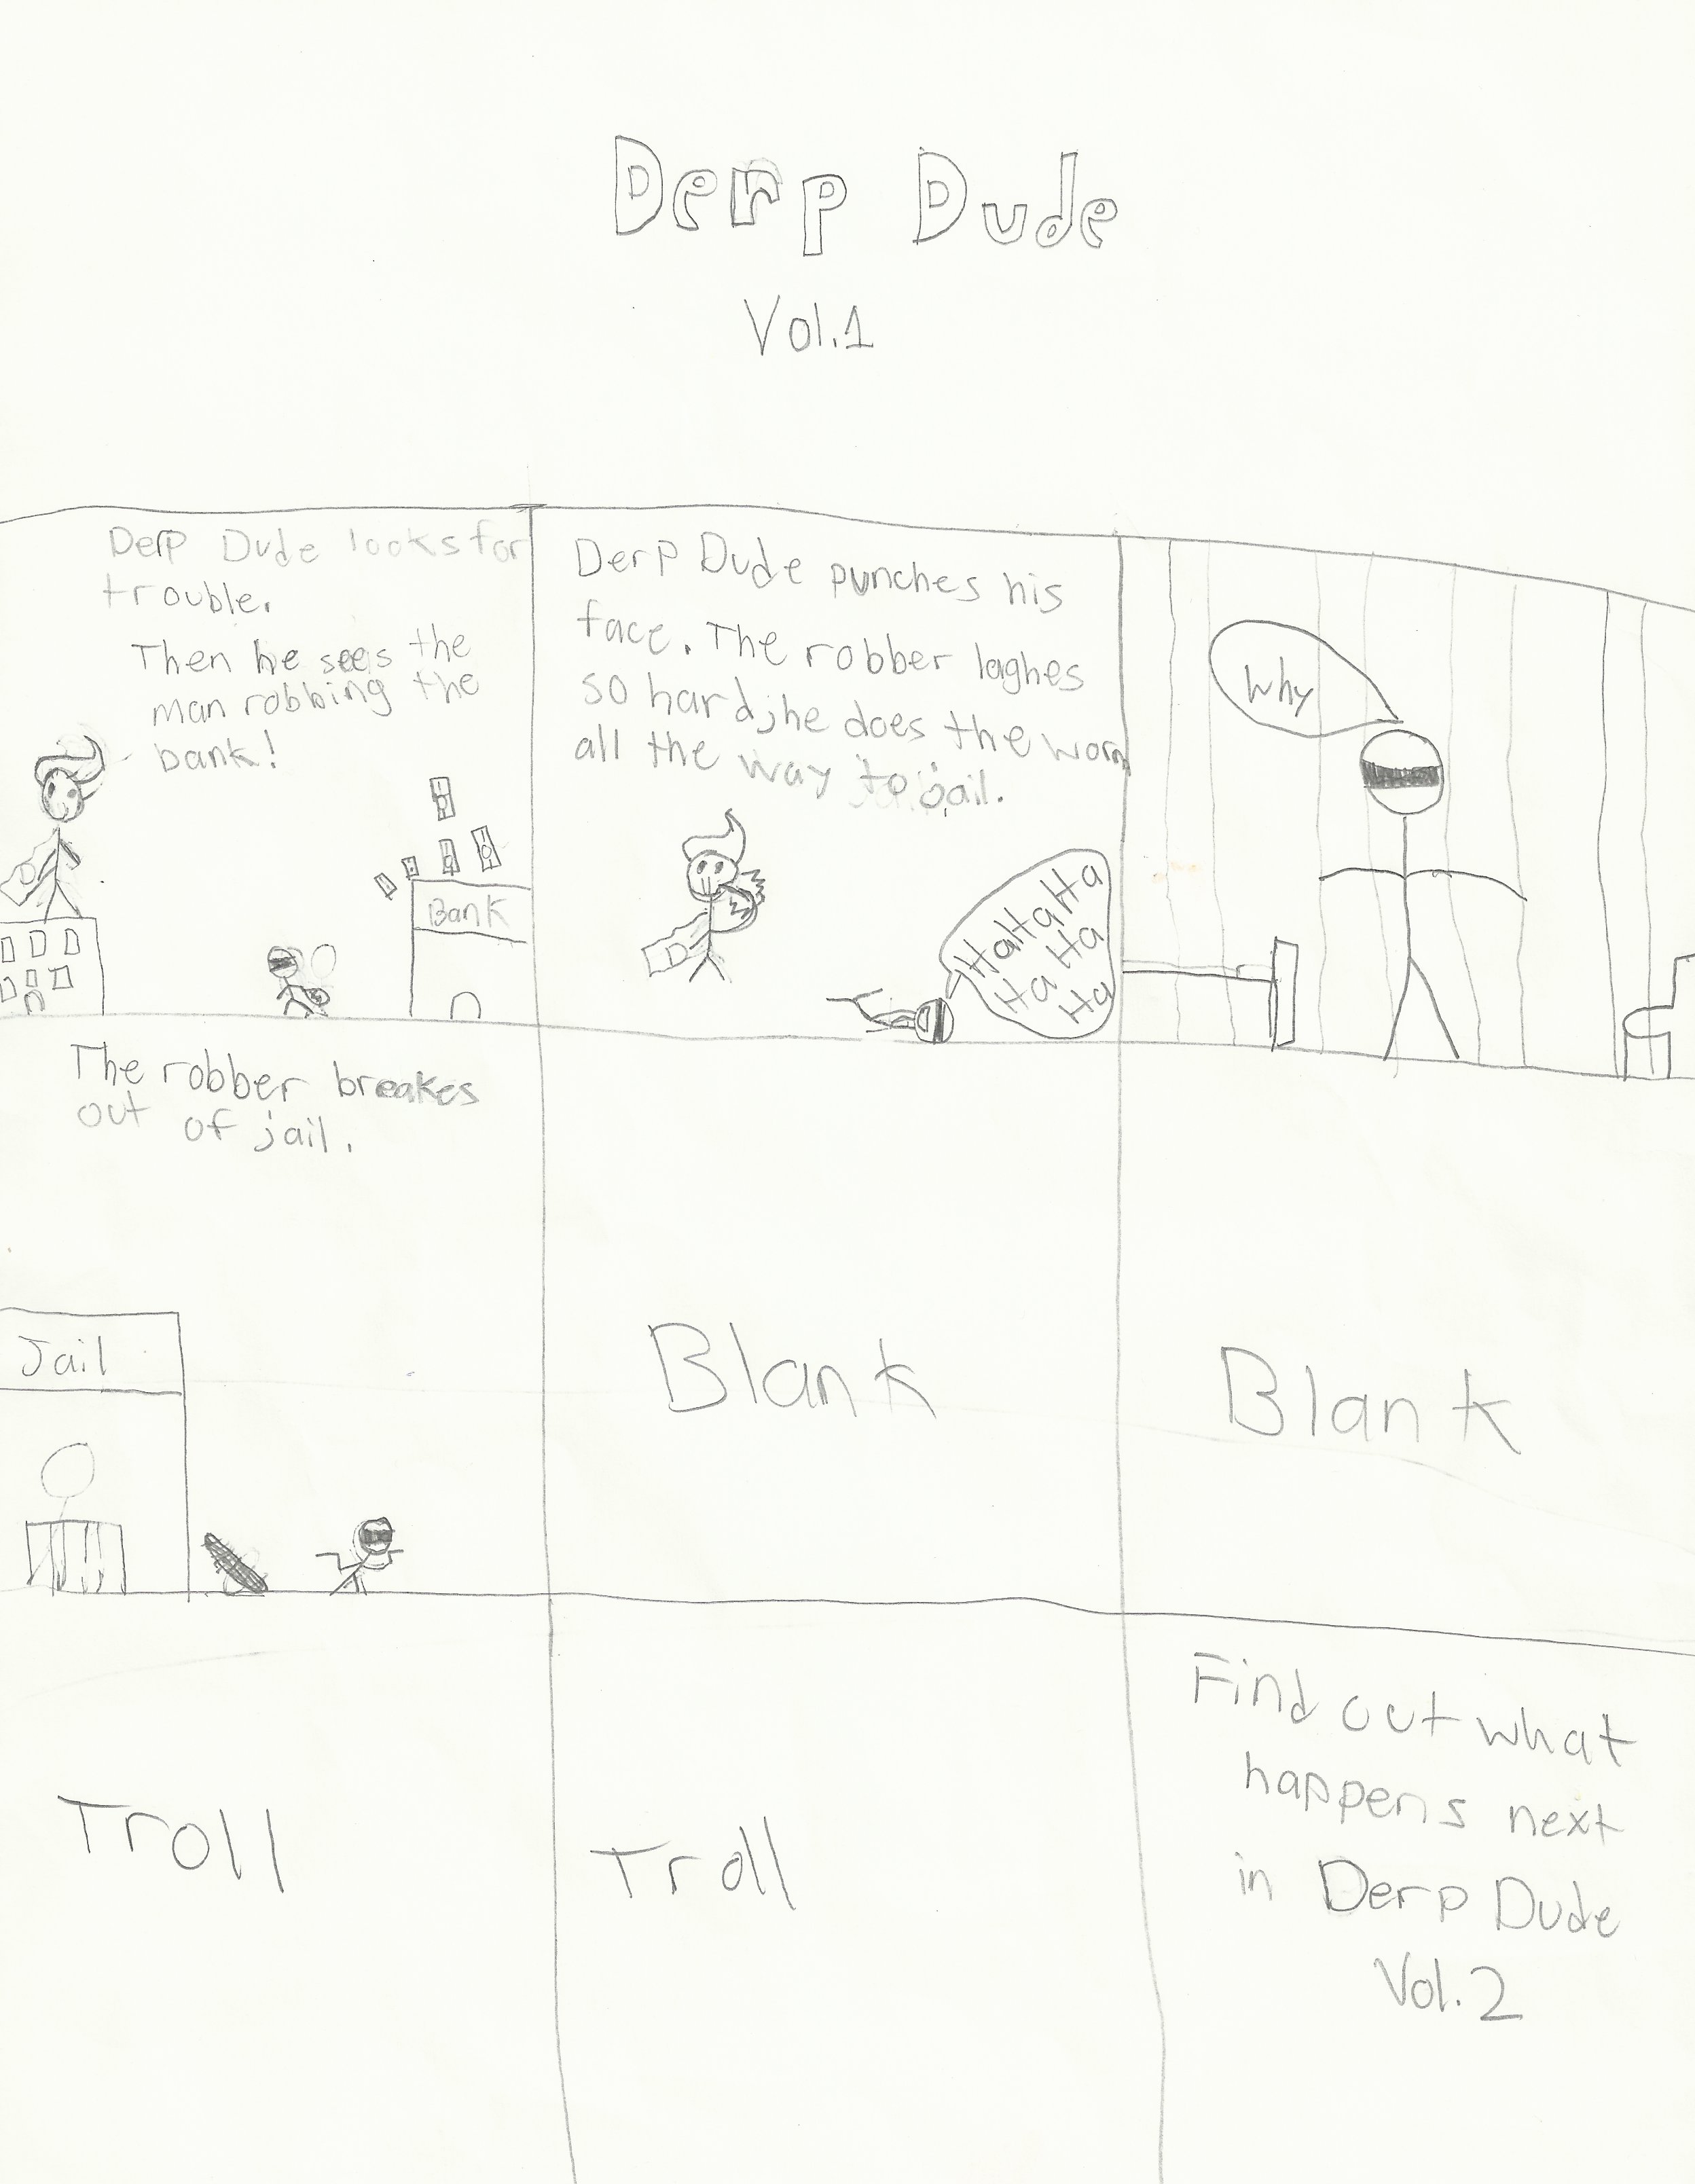 Derp Dude
Vol.1
Derp Dude looks for
trouble.
Then he sees the
man robbing the
bank!
Bank
D
Derp Dude punches his
face. The robber laghes
so hard, he does the worm
all the way to jail.
D
HaHaHaHa
Ha Ha
Ha
Why
The robber breakes
out of jail.
Jail
Blank
Blank
Troll
Troll
Find out what
happens next
in Derp Dude
Vol.2